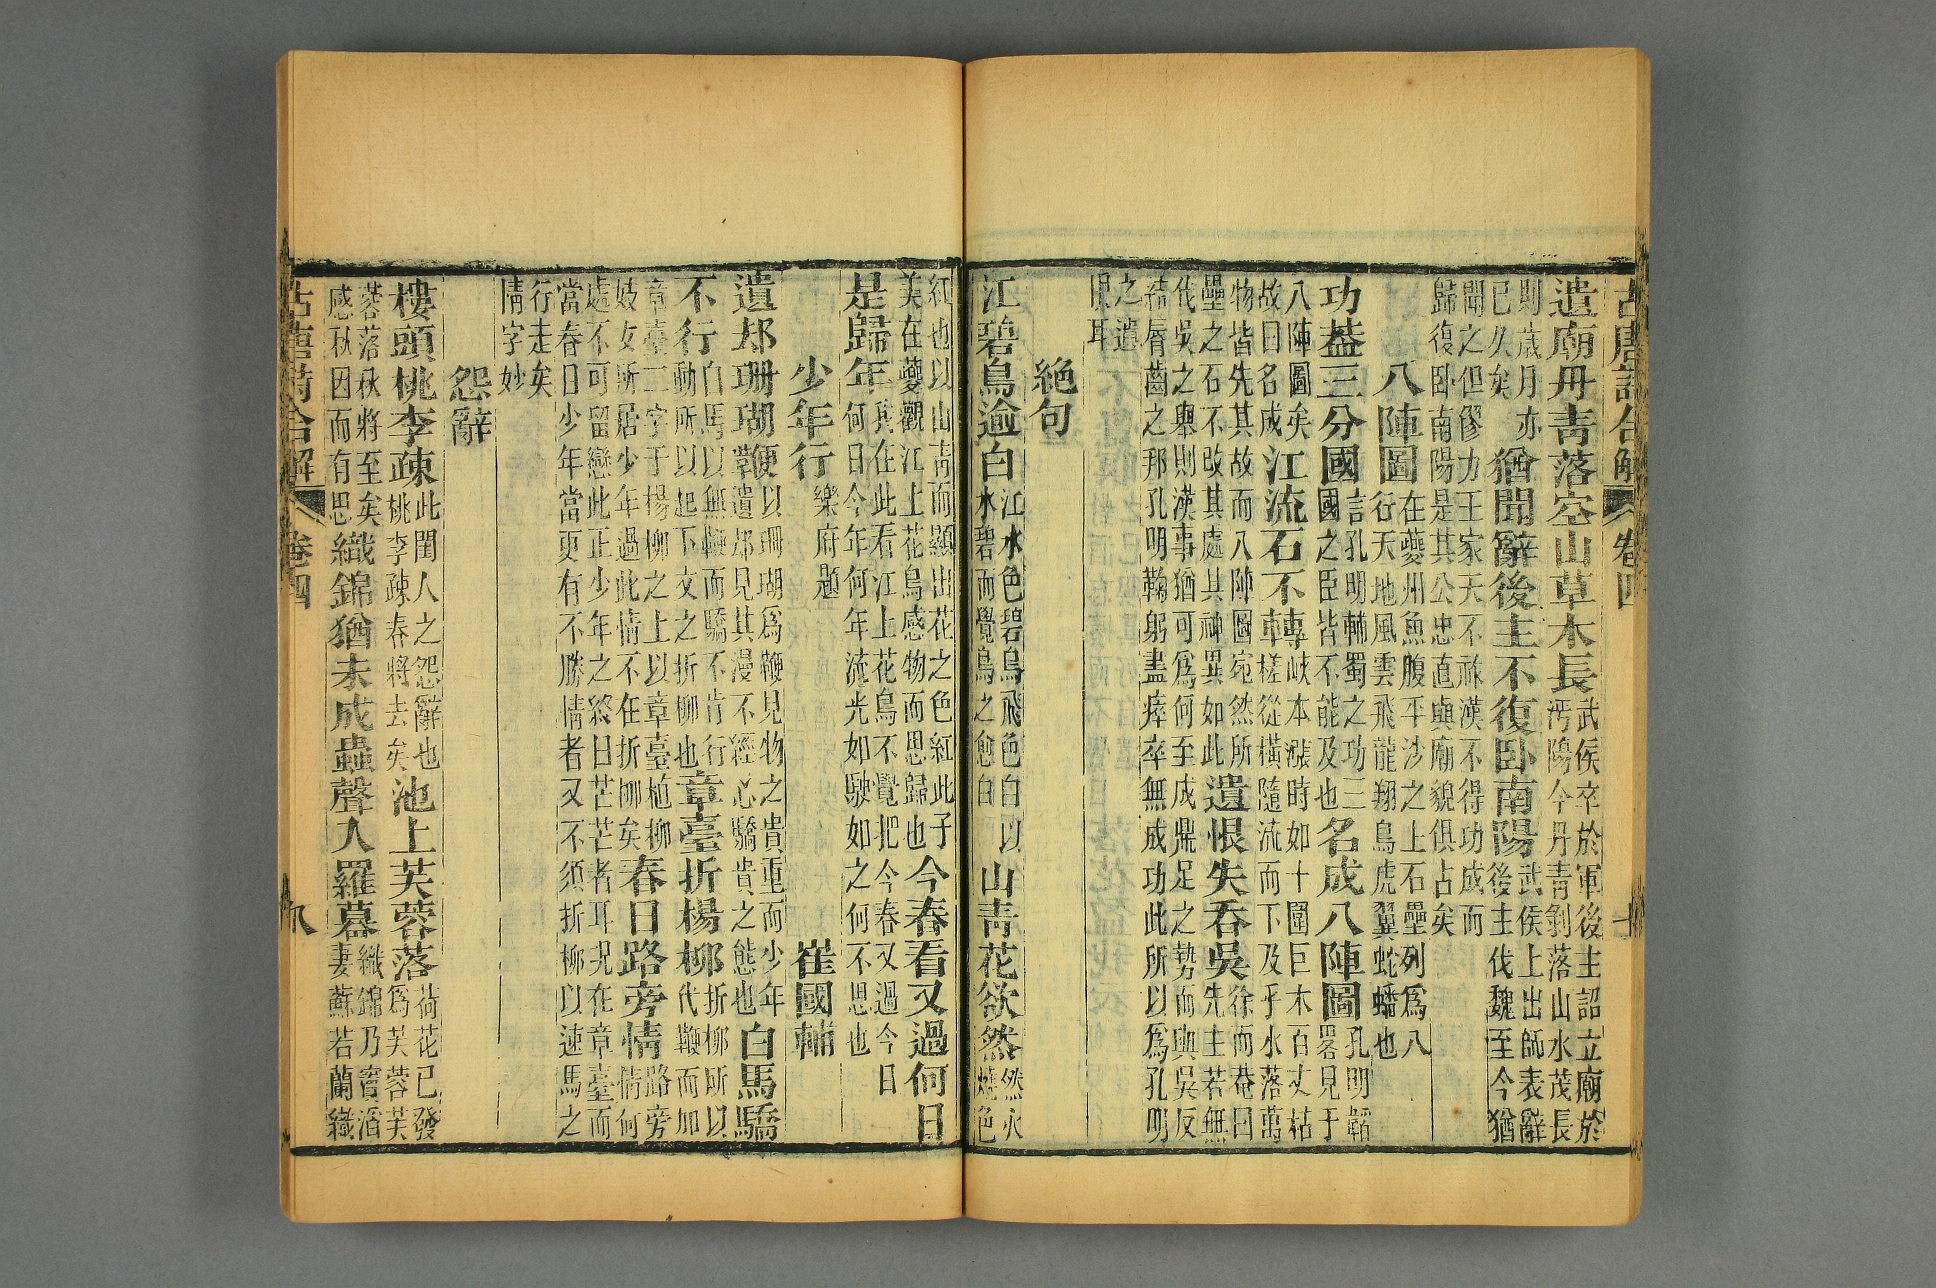 古唐詩合解 卷四 七
遺廟丹青落空山草木長
武侯卒於軍後主詔立廟於
沔陽今丹青剝落山水茂長
則歲月亦
已久矣
猶聞辭後主不復臥南陽
武侯上出師表辭
後主伐魏至今猶
聞之但僇力王家天不祚漢不得功成而
歸復卧南陽是其公忠直與廟貌俱占矣
八陣圖
在夔州魚腹平沙之上石壘列爲八
行天地風雲飛龍翔鳥虎翼蛇蟠也
功葢三分國
言孔明輔蜀之功三
國之臣皆不能及也
名成八陣圖
孔明韜
畧見于
八陣圖矣
故曰名成
江流石不轉
峽本漲時如十圍巨木百丈枯
槎從橫隨流而下及乎水落萬
物皆先其故而八陣圖宛然所
壘之石不改其處其神異如此
遺恨失吞吳
徐而菴曰
先主若無
伐吳之舉則漢事猶可爲何至成鼎足之勢而與吳反
結脣齒之邦孔明鞠躬盡瘁卒無成功此所以爲孔明
之遺
恨耳
絶句
江碧鳥逾白
江水色碧鳥飛色白以
水碧而覺鳥之愈白
山青花欲然
然火
燒色
紅也以山青而顯出花之色紅此子
美在夔觀江上花鳥感物而思歸也
今春看又過何日
是歸年
其在此看江上花鳥不覺把今春又過今日
何日今年何年流光如駛如之何不思也
少年行 樂府題 崔國輔
遺却珊瑚鞭
以珊瑚爲鞭見物之貴重而少年
常遺却見其漫不經心驕貴之態也
白馬驕
不行
白馬以無鞭而驕不肯行
動所以起下文之折柳也
章臺折楊柳
折柳所以
代鞭而加
章臺二字于楊柳之上以章臺植柳
妓女所居少年過此情不在折柳矣
春日路旁情
路旁
情何
處不可留戀此正少年之終日芒芒者耳况在章臺而
當春日少年當更有不勝情者又不須折柳以速馬之
行走矣
情字妙
怨辭
樓頭桃李疎
此閨人之怨辭也
桃李疎春將去矣
池上芙蓉落
荷花已發
爲芙蓉芙
蓉落秋將至矣
感秋因而有思
織錦猶未成蟲聲人羅幕
織錦乃竇滔
妻蘇若蘭織
古唐詩合解 卷四 八